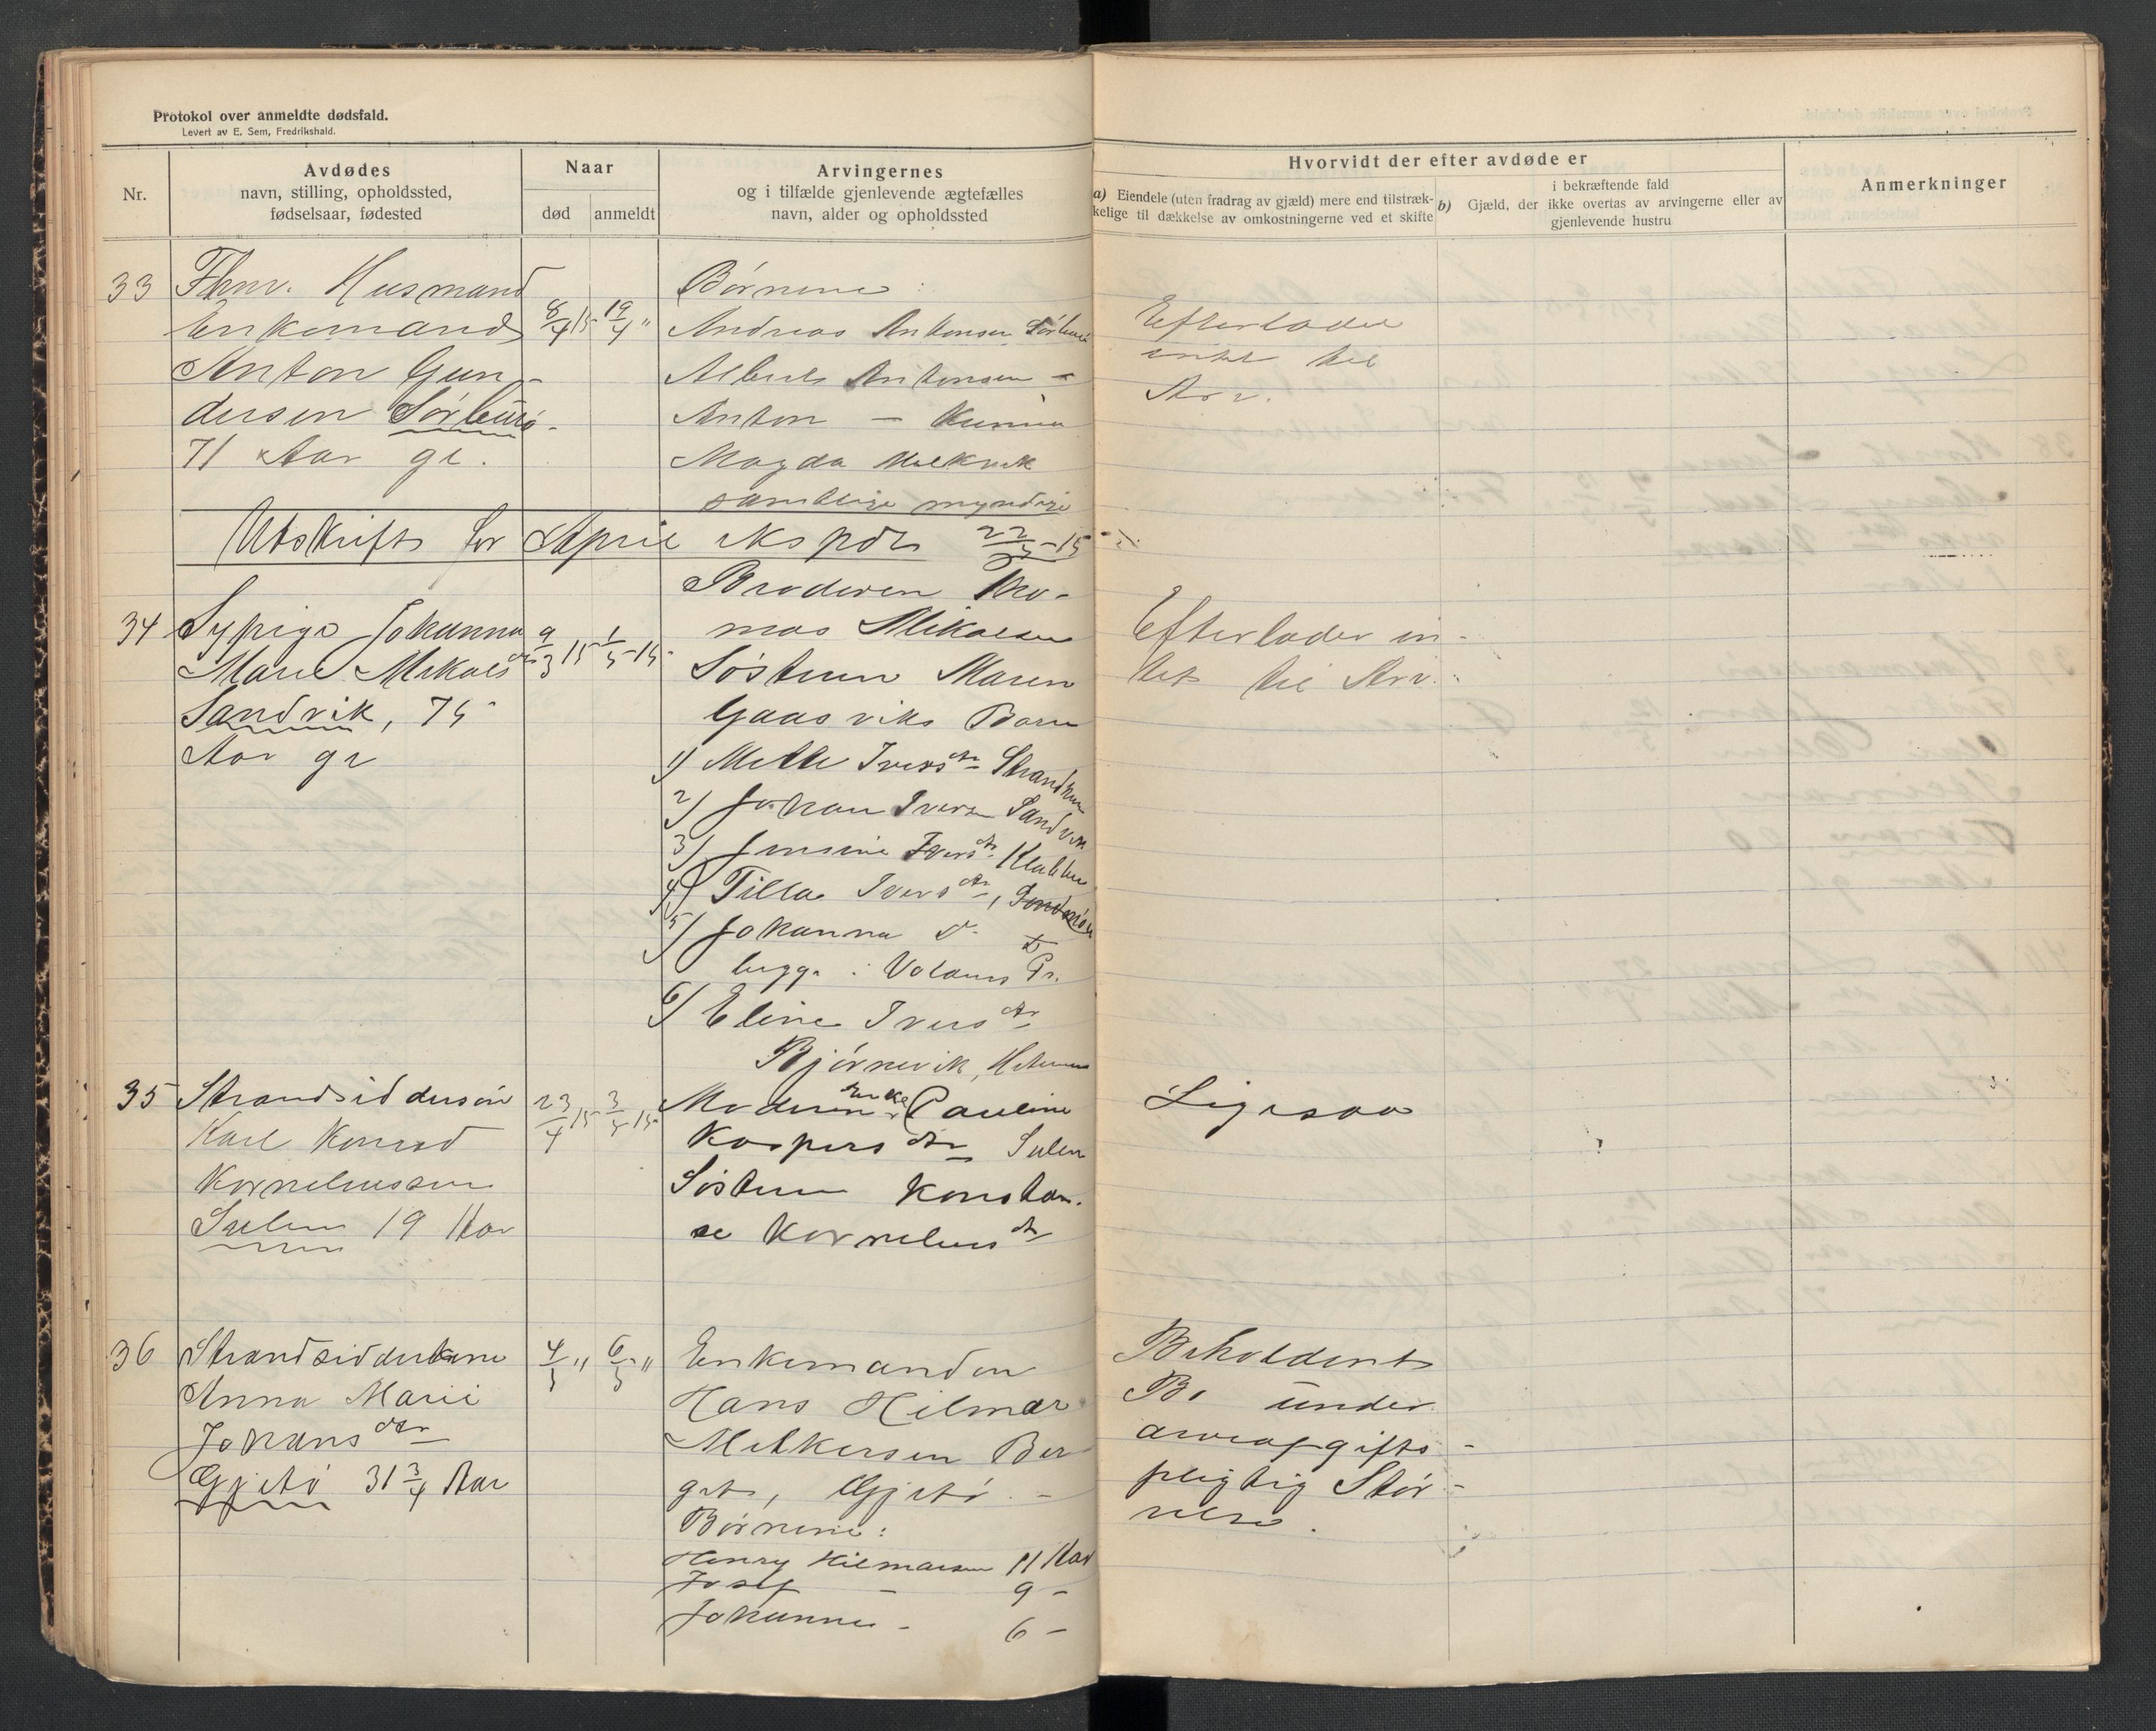 Protokol over anmeldte dødsfald.
Levert av E. Sem, Fredrikshald.
Nr.
Avdødes
navn, stilling, opholdssted,
fødselsaar, fødested
Naar
død
anmeldt
Arvingernes
og i tilfælde gjenlevende ægtefælles
navn, alder og opholdssted
Hvorvidt der efter avdøde er
a) Eiendele (uten fradrag av gjæld) mere end tilstræk-
kelige til dækkelse av omkostningerne ved et skifte
i bekræftende fald
b) Gjæld, der ikke overtas av arvingerne eller av
gjenlevende hustru
Anmerkninger
33
Fhnv. Husmand
Enkemand
Anton Gun-
dersen
71 Aar gl.
8/4 15
19/4 "
Børnene:
Andreas Antonsen
Albert Antonsen -
Anton -
Magda
samtlige myndige
Efterlader
intet til
Arv.
Utskrift for April ekspdt 22/5-15
34
Sypige Johanna
Marie Mikalsdtr
Sandvik, 75
Aar gl
9/3 15
1/5-15
Broderen Tho-
mas Mikalsen
Søsteren Maren
Gaasviks Børn
1) Mette Iversdtr
2) Johan Iversen Sandvik
3) Jensine Iversdtr
4) Tilla Iversdtr,
5) Johanna d
begge i
6) Eline Iversdtr
Bjørnevik,
Efterlader in-
tet til Arv.
35
Strandsiddersøn
Karl Konrad
Korneliussen
Sulen 19 Aar
23/4 15
3/5 15
Moderen Enke Pauline
Kaspersdtr Sulen
Søsteren Konstan-
se Korneliusdtr
Ligesaa
36
Strandsidderkone
Anna Marie
Johansdtr
Gjetø 31 3/4 Aar
4/5 "
6/5 "
Enkemanden
Hans Hilmar
Melkersen Ber
get, Gjetø. -
Børnene:
Henry Hilmarsen 11 Aar
Josef - 9 -
Johannes - 6 -
Beholdent
Bo under
arveafgifts-
pligtig Stør-
relse.